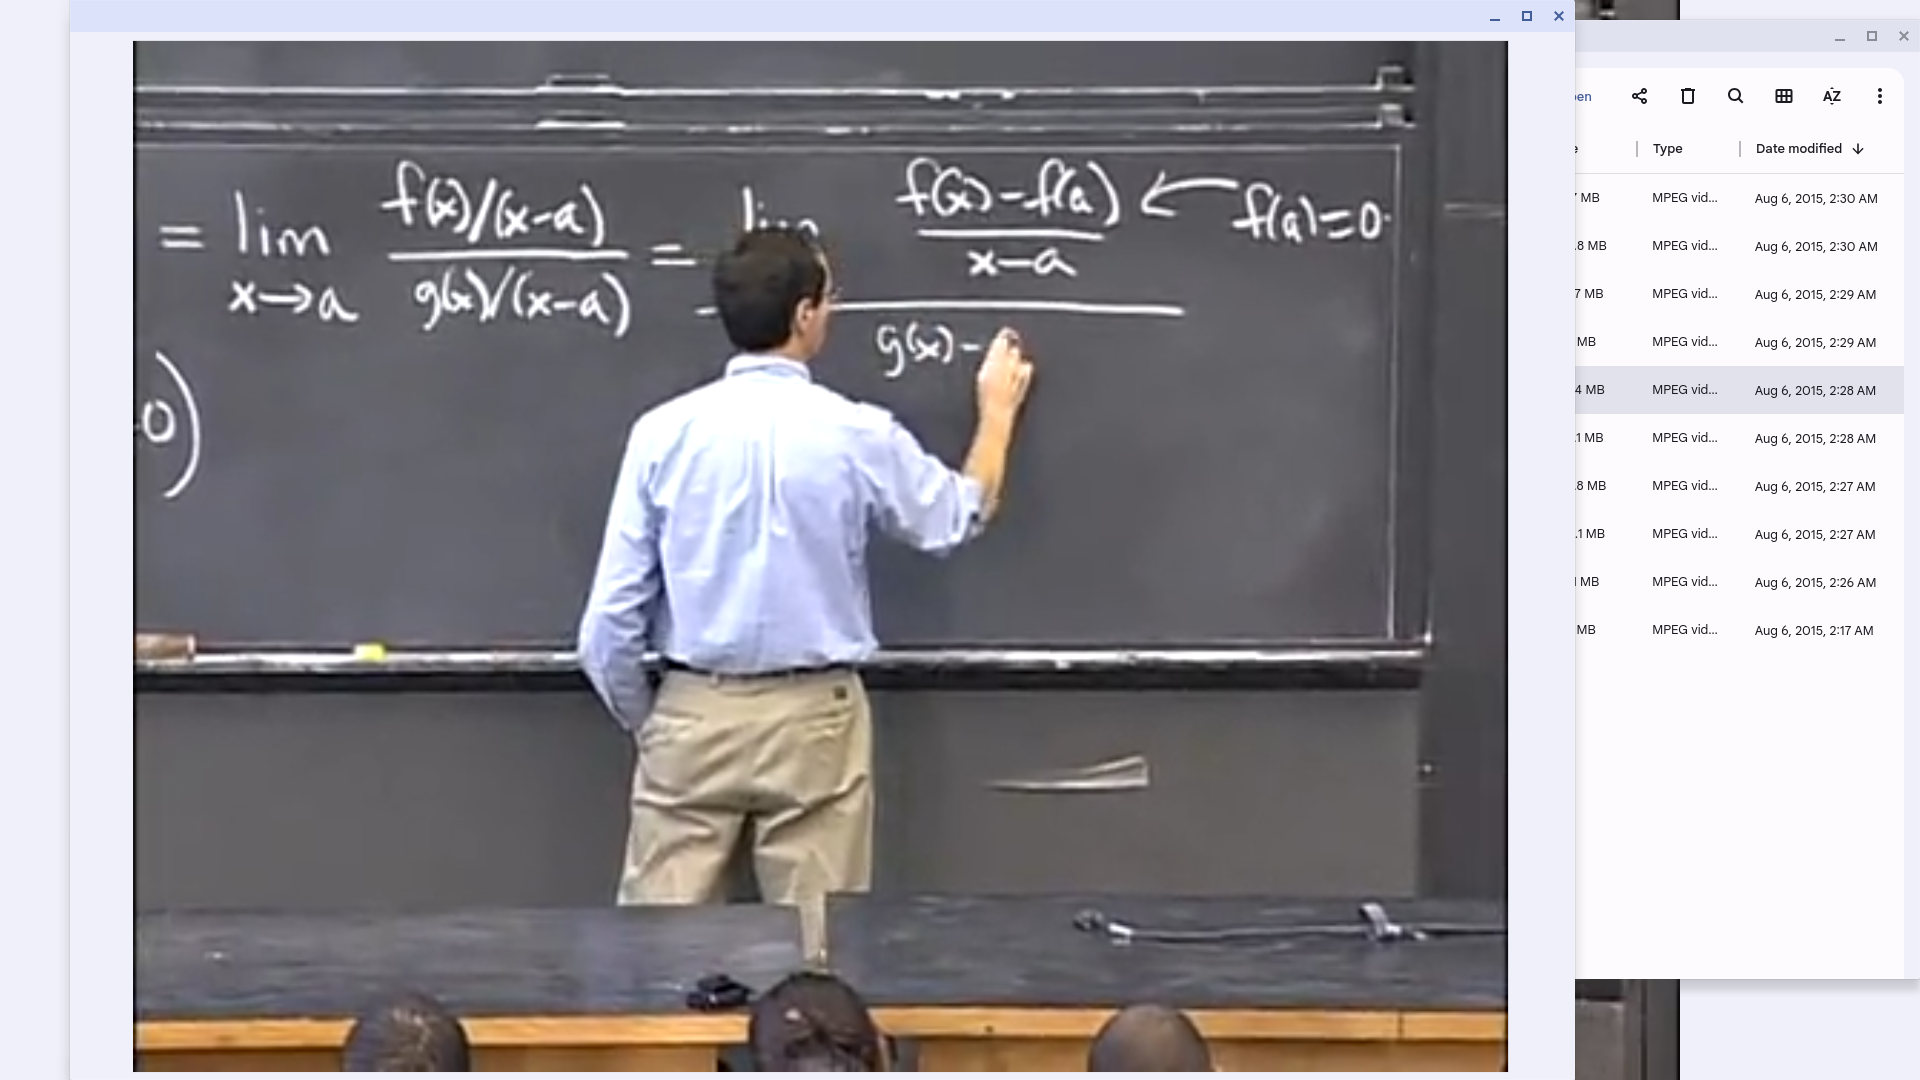 = lim x→a f(x)/(x-a) / g(x)/(x-a) = lim f(x)-f(a) / x-a ← f(a)=0
g(x)-
0)
en
Type
Date modified
MB MPEG vid... Aug 6, 2015, 2:30 AM
.8 MB MPEG vid... Aug 6, 2015, 2:30 AM
7 MB MPEG vid... Aug 6, 2015, 2:29 AM
MB MPEG vid... Aug 6, 2015, 2:29 AM
4 MB MPEG vid... Aug 6, 2015, 2:28 AM
.1 MB MPEG vid... Aug 6, 2015, 2:28 AM
.8 MB MPEG vid... Aug 6, 2015, 2:27 AM
.1 MB MPEG vid... Aug 6, 2015, 2:27 AM
MB MPEG vid... Aug 6, 2015, 2:26 AM
MB MPEG vid... Aug 6, 2015, 2:17 AM